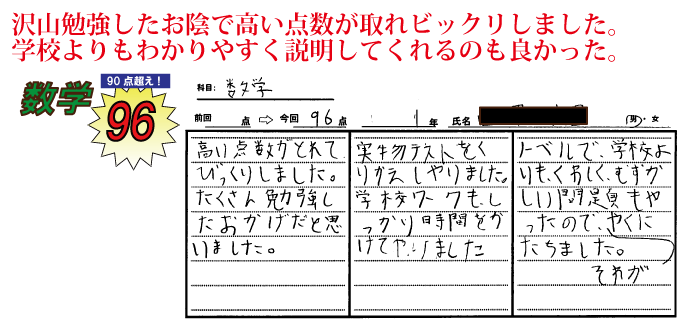 沢山勉強したお陰で高い点数が取れビックリしました。
学校よりもわかりやすく説明してくれるのも良かった。
数学
90点超え！
96
科目: 数学
前回 点 ⇨ 今回 96 点 1 年 氏名 男・女
高い点数がとれて
びっくりしました。
たくさん勉強し
たおかげだと思
いました。
実物テストをく
りかえしやりました。
学校ワークも、し
っかり時間をか
けてやりました
トーベルで、学校よ
りもくわしく、むずか
しい問題もや
ったので、やくに
たちました。
それが